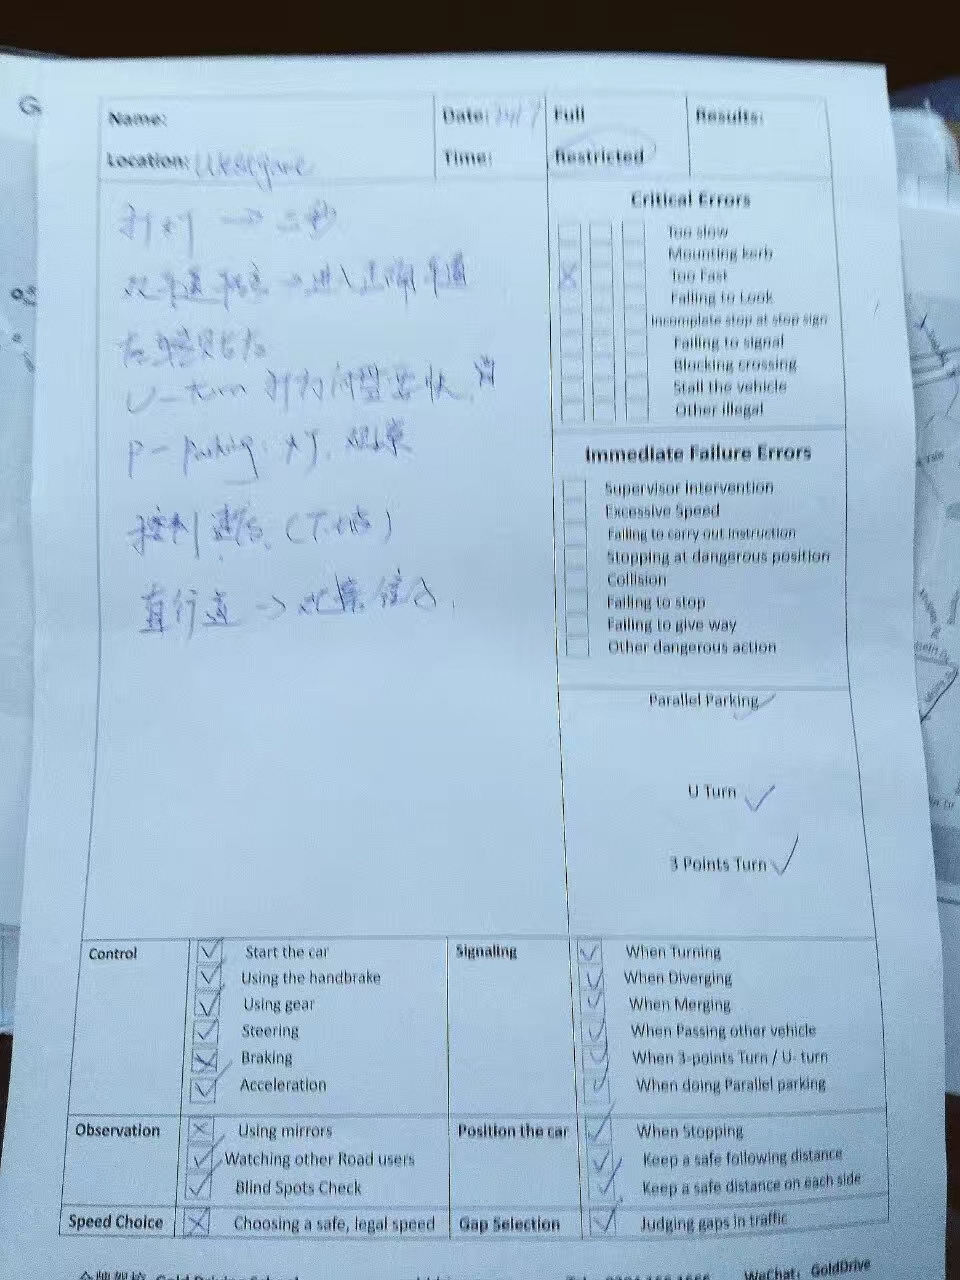 G
Name:
Date: 24/7
Full
Results:
Location: Westgate
Time:
Restricted
打灯 → 三秒
双车道 → 进入正确车道
U-turn 打方向盘要快
P-parking 灯. 观察
控制速度 (T.路)
直行道 →
Critical Errors
Too slow
Mounting kerb
Too Fast
Failing to Look
Incomplete stop at stop sign
Failing to signal
Blocking crossing
Stall the vehicle
Other illegal
Immediate Failure Errors
Supervisor Intervention
Excessive Speed
Failing to carry out instruction
Stopping at dangerous position
Collision
Failing to stop
Failing to give way
Other dangerous action
Parallel Parking
U Turn
3 Points Turn
Control
Start the car
Using the handbrake
Using gear
Steering
Braking
Acceleration
Signaling
When Turning
When Diverging
When Merging
When Passing other vehicle
When 3-points Turn / U- turn
When doing Parallel parking
Observation
Using mirrors
Watching other Road users
Blind Spots Check
Position the car
When Stopping
Keep a safe following distance
Keep a safe distance on each side
Speed Choice
Choosing a safe, legal speed
Gap Selection
Judging gaps in traffic
WeChat: GoldDrive